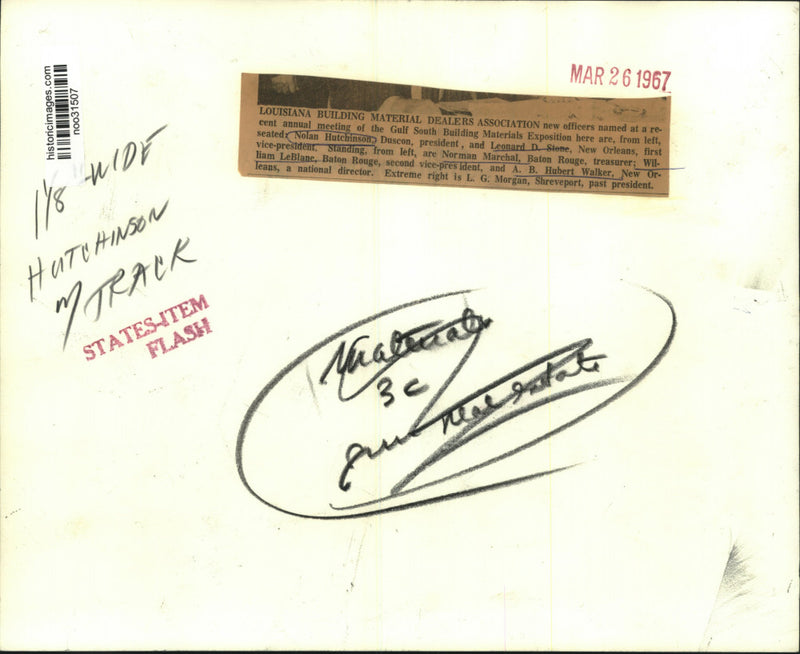 historicimages.com
noo31507
MAR 26 1967
LOUISIANA BUILDING MATERIAL DEALERS ASSOCIATION new officers named at a re-
cent annual meeting of the Gulf South Building Materials Exposition here are, from left,
seated: Nolan Hutchinson, Duscon, president, and Leonard D. Stone, New Orleans, first
vice-president. Standing, from left, are Norman Marchal, Baton Rouge, treasurer; Wil-
liam LeBlanc, Baton Rouge, second vice-president, and A. B. Hubert Walker, New Or-
leans, a national director. Extreme right is L. G. Morgan, Shreveport, past president.
1 1/8 WIDE
HUTCHINSON
TRACK
STATES-ITEM
FLASH
Materials
3c
Real Estate